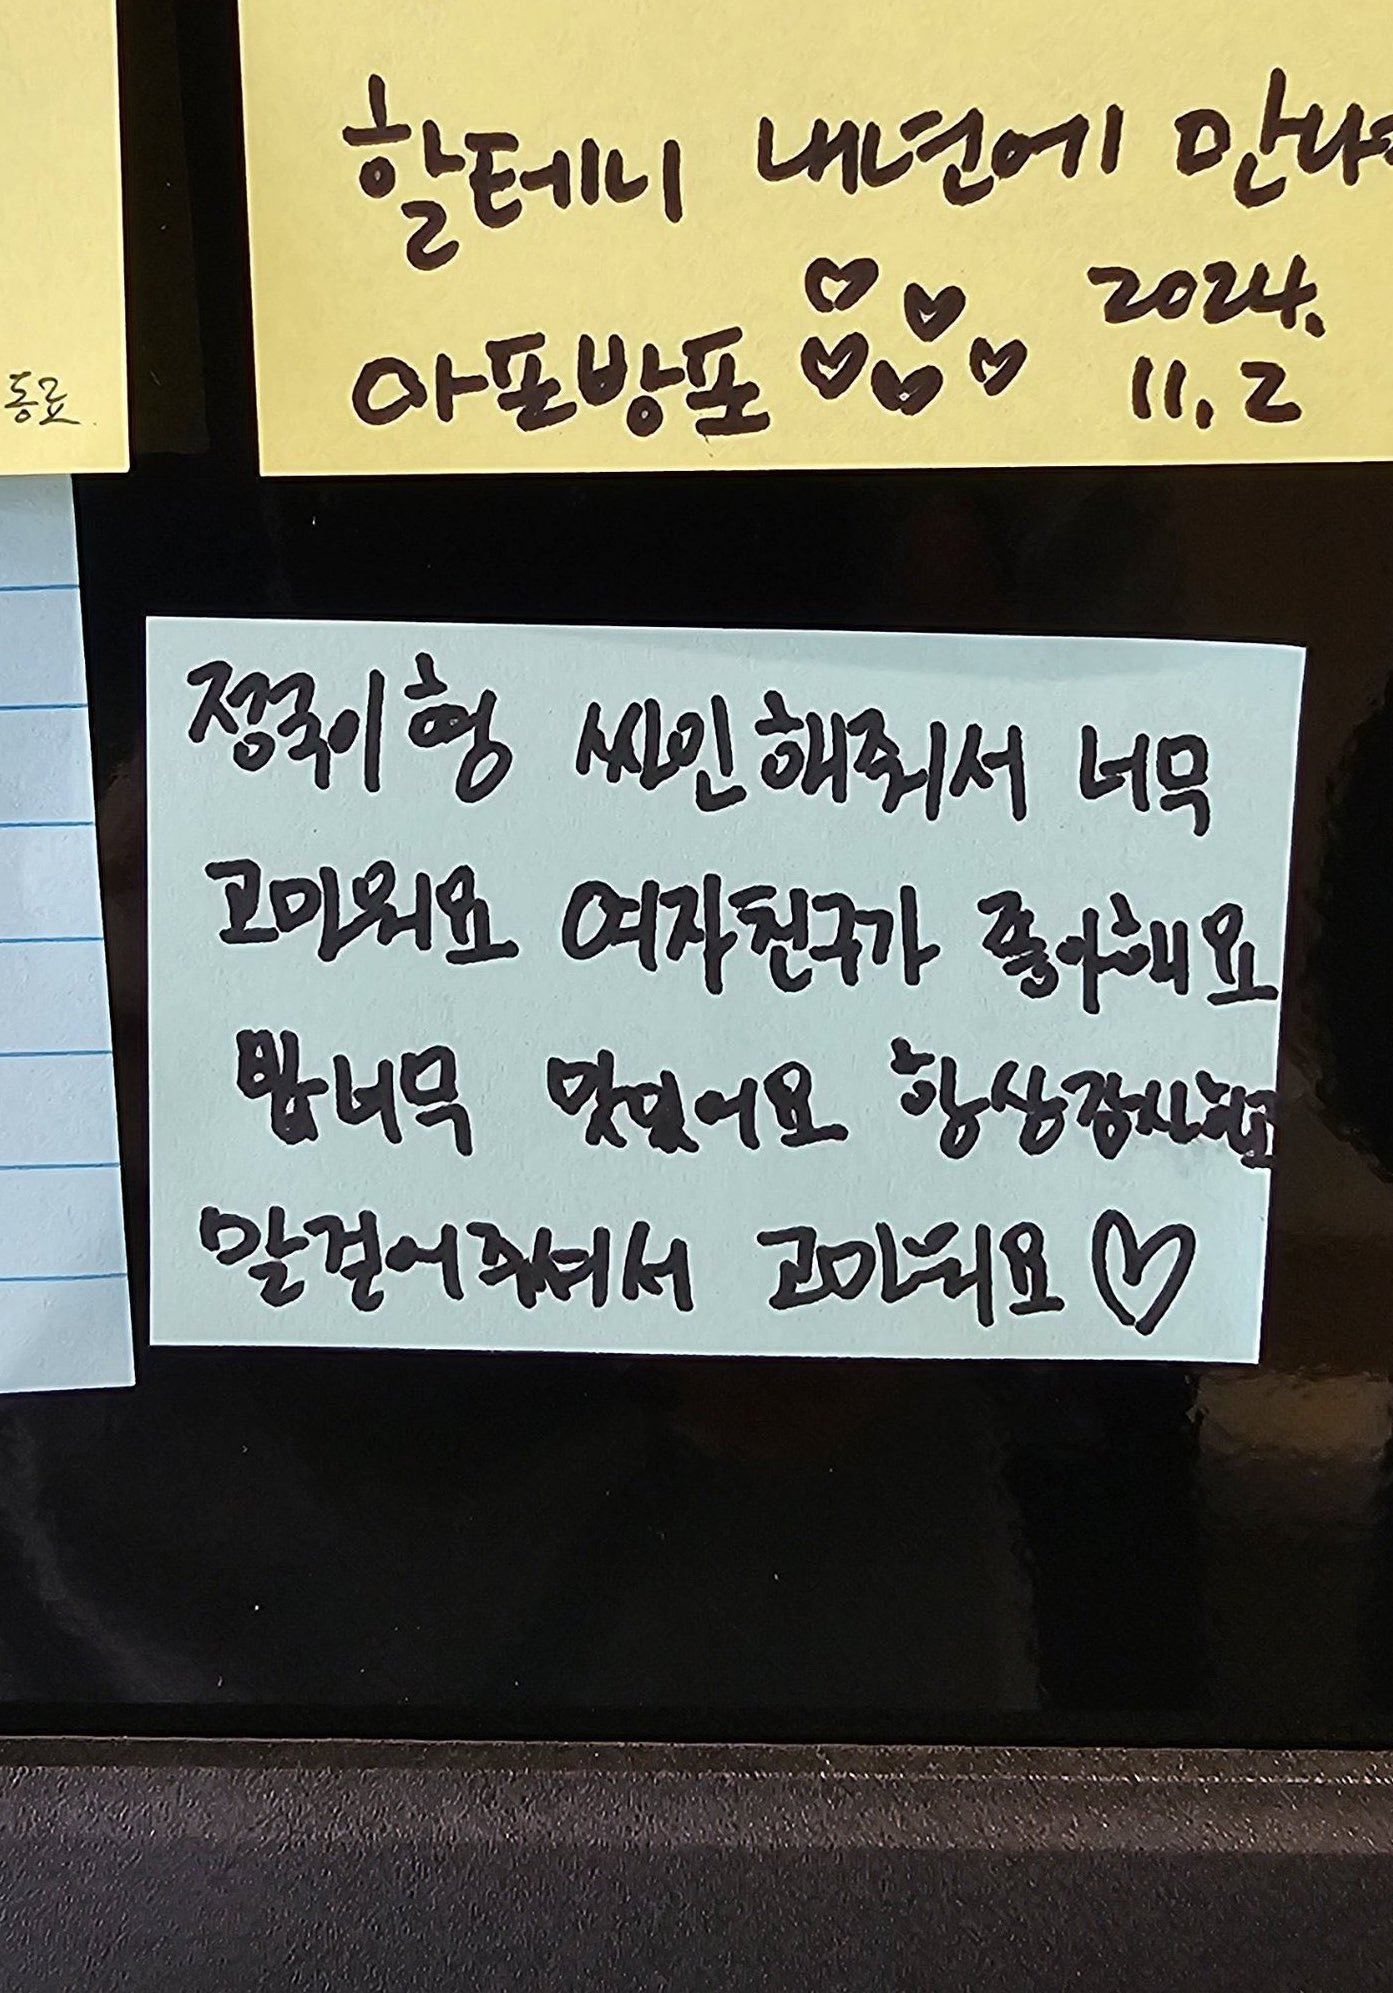 할테니 내년에 만나
아포방포 2024.
11.2
동료
정국이형 싸인해줘서 너무
고마워요 여자친구가 좋아해요
밥너무 맛있어요 항상
말걸어주셔서 고마워요